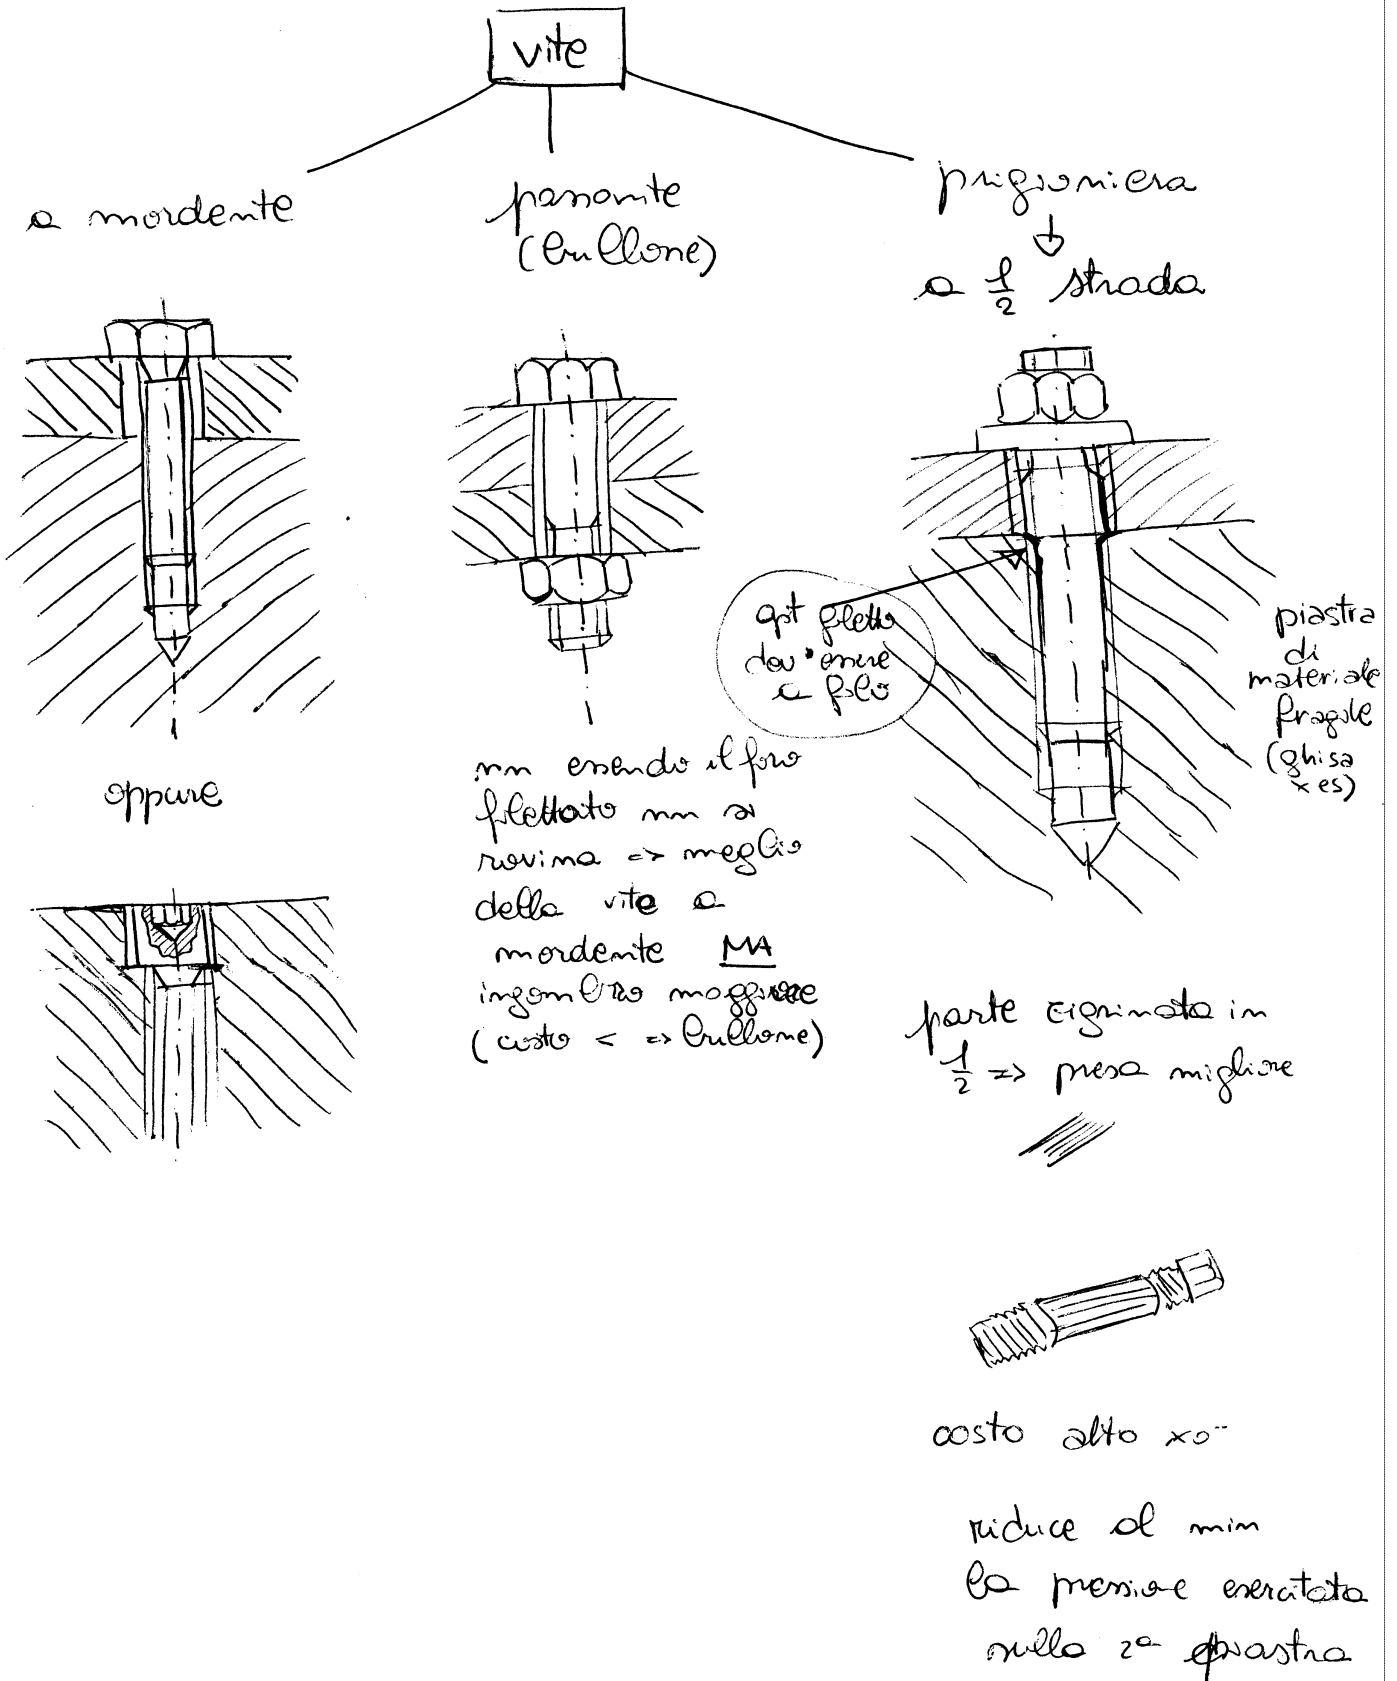 vite
a mordente
oppure
passante
(bullone)
nn essendo il foro
filettato nn si
rovina => meglio
della vite a
mordente MA
ingombro maggiore
(costo < => bullone)
prigioniera
↓
a 1/2 strada
qst filetto
dev'essere
a filo
piastra
di
materiale
fragile
(ghisa
x es)
parte zigrinata in
1/2 => presa migliore
costo alto xo--
riduce al min
la pressione esercitata
sulla 2a piastra